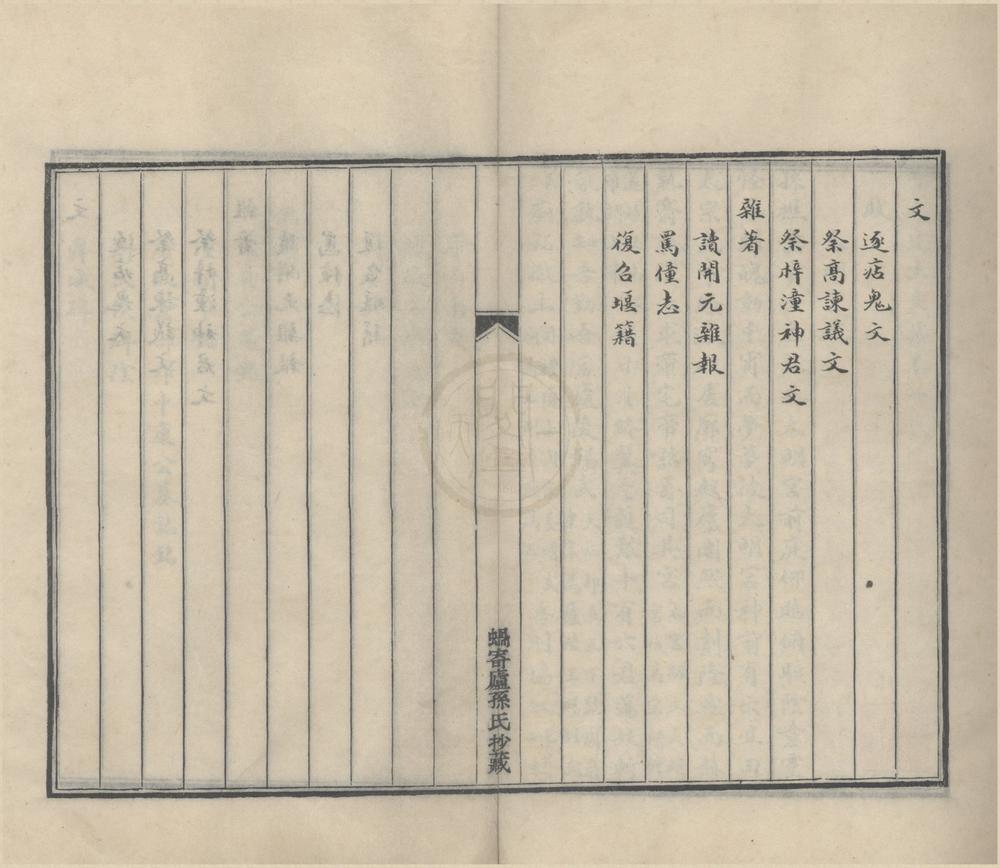 文
逐痁鬼文
祭高諫議文
祭梓潼神君文
雜著
讀開元雜報
罵僮志
復召堰籍
蝸寄廬孫氏抄藏